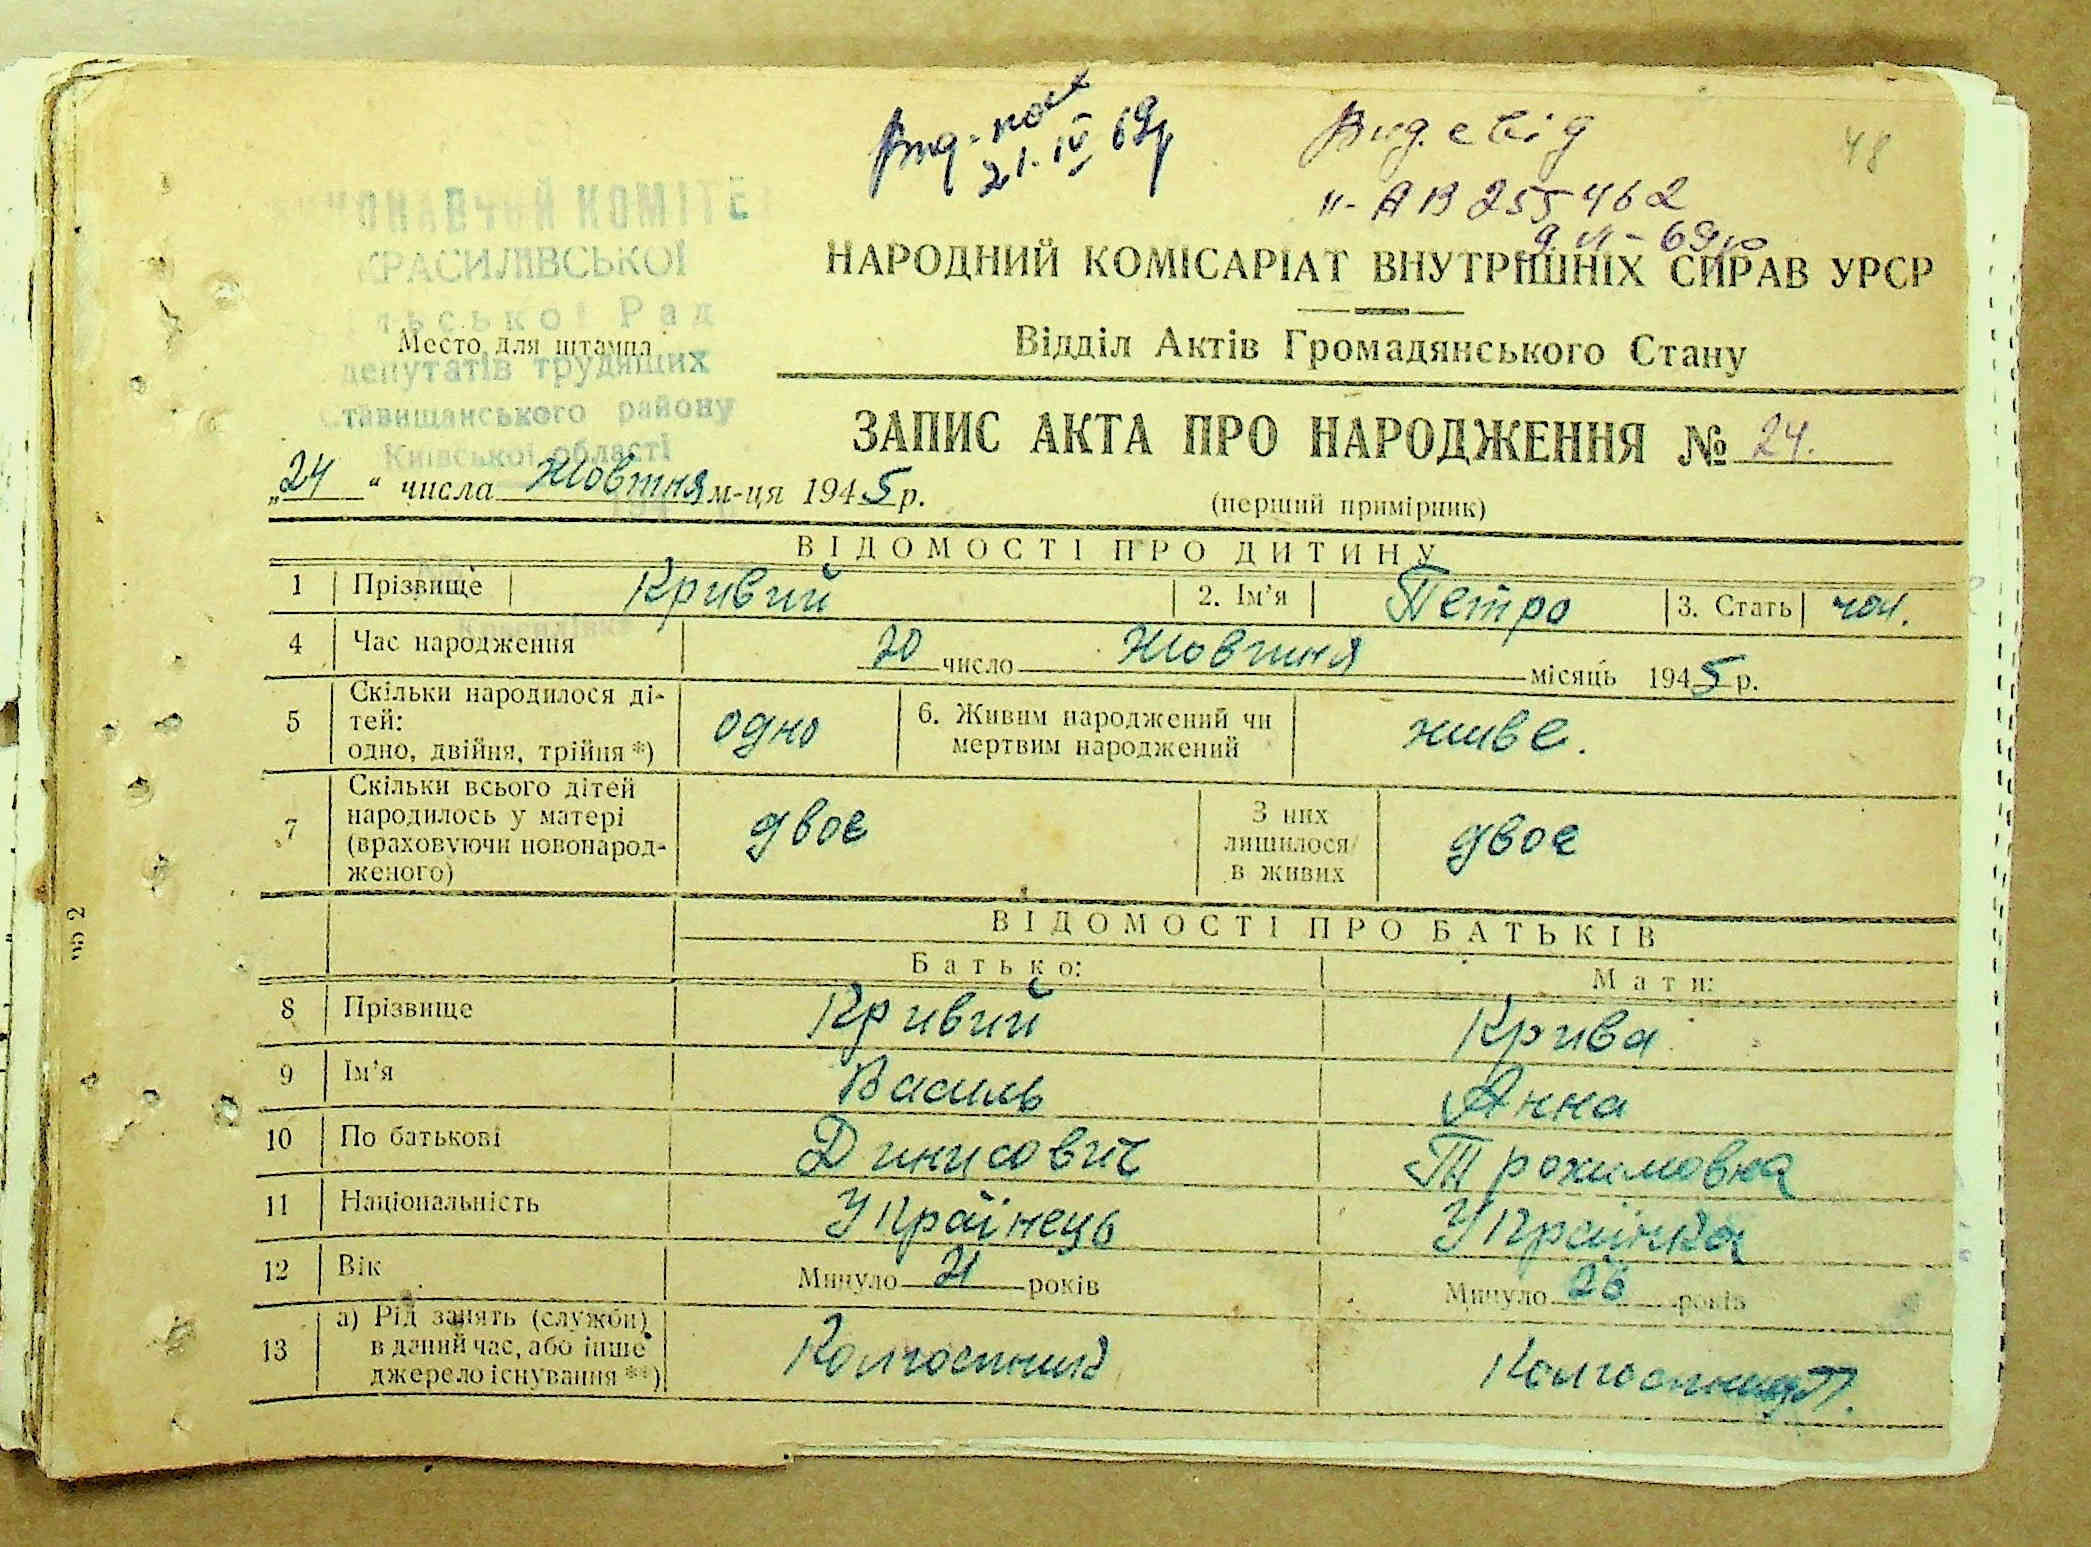 48
21. IV 69р
Вид. свід
ІІ-АВ 255462
НАРОДНИЙ КОМІСАРІАТ ВНУТРІШНІХ СПРАВ УРСР
Відділ Актів Громадянського Стану
КРАСИЛІВСЬКОЇ
Место для штампа
депутатів трудящих
Ставищанського району
Київської області
ЗАПИС АКТА ПРО НАРОДЖЕННЯ № 24.
(перший примірник)
„24“ числа Жовтня м-ця 1945 р.
ВІДОМОСТІ ПРО ДИТИНУ
1 Прізвище Кривий 2. Ім'я Петро 3. Стать чол.
4 Час народження 20 число Жовтня місяць 1945 р.
5 Скільки народилося ді-
тей:
одно, двійня, трійня *) одно 6. Живим народжений чи
мертвим народжений живе.
7 Скільки всього дітей
народилось у матері
(враховуючи новонарод-
женого) двоє З них
лишилося
в живих двоє
ВІДОМОСТІ ПРО БАТЬКІВ
Батько: Мати:
8 Прізвище Кривий Крива
9 Ім'я Василь Анна
10 По батькові Динисович Трохимовна
11 Національність Українець Українка
12 Вік Минуло 21 років Минуло 26 років
13 а) Рід занять (служби)
в даний час, або інше
джерело існування **) Колгоспник